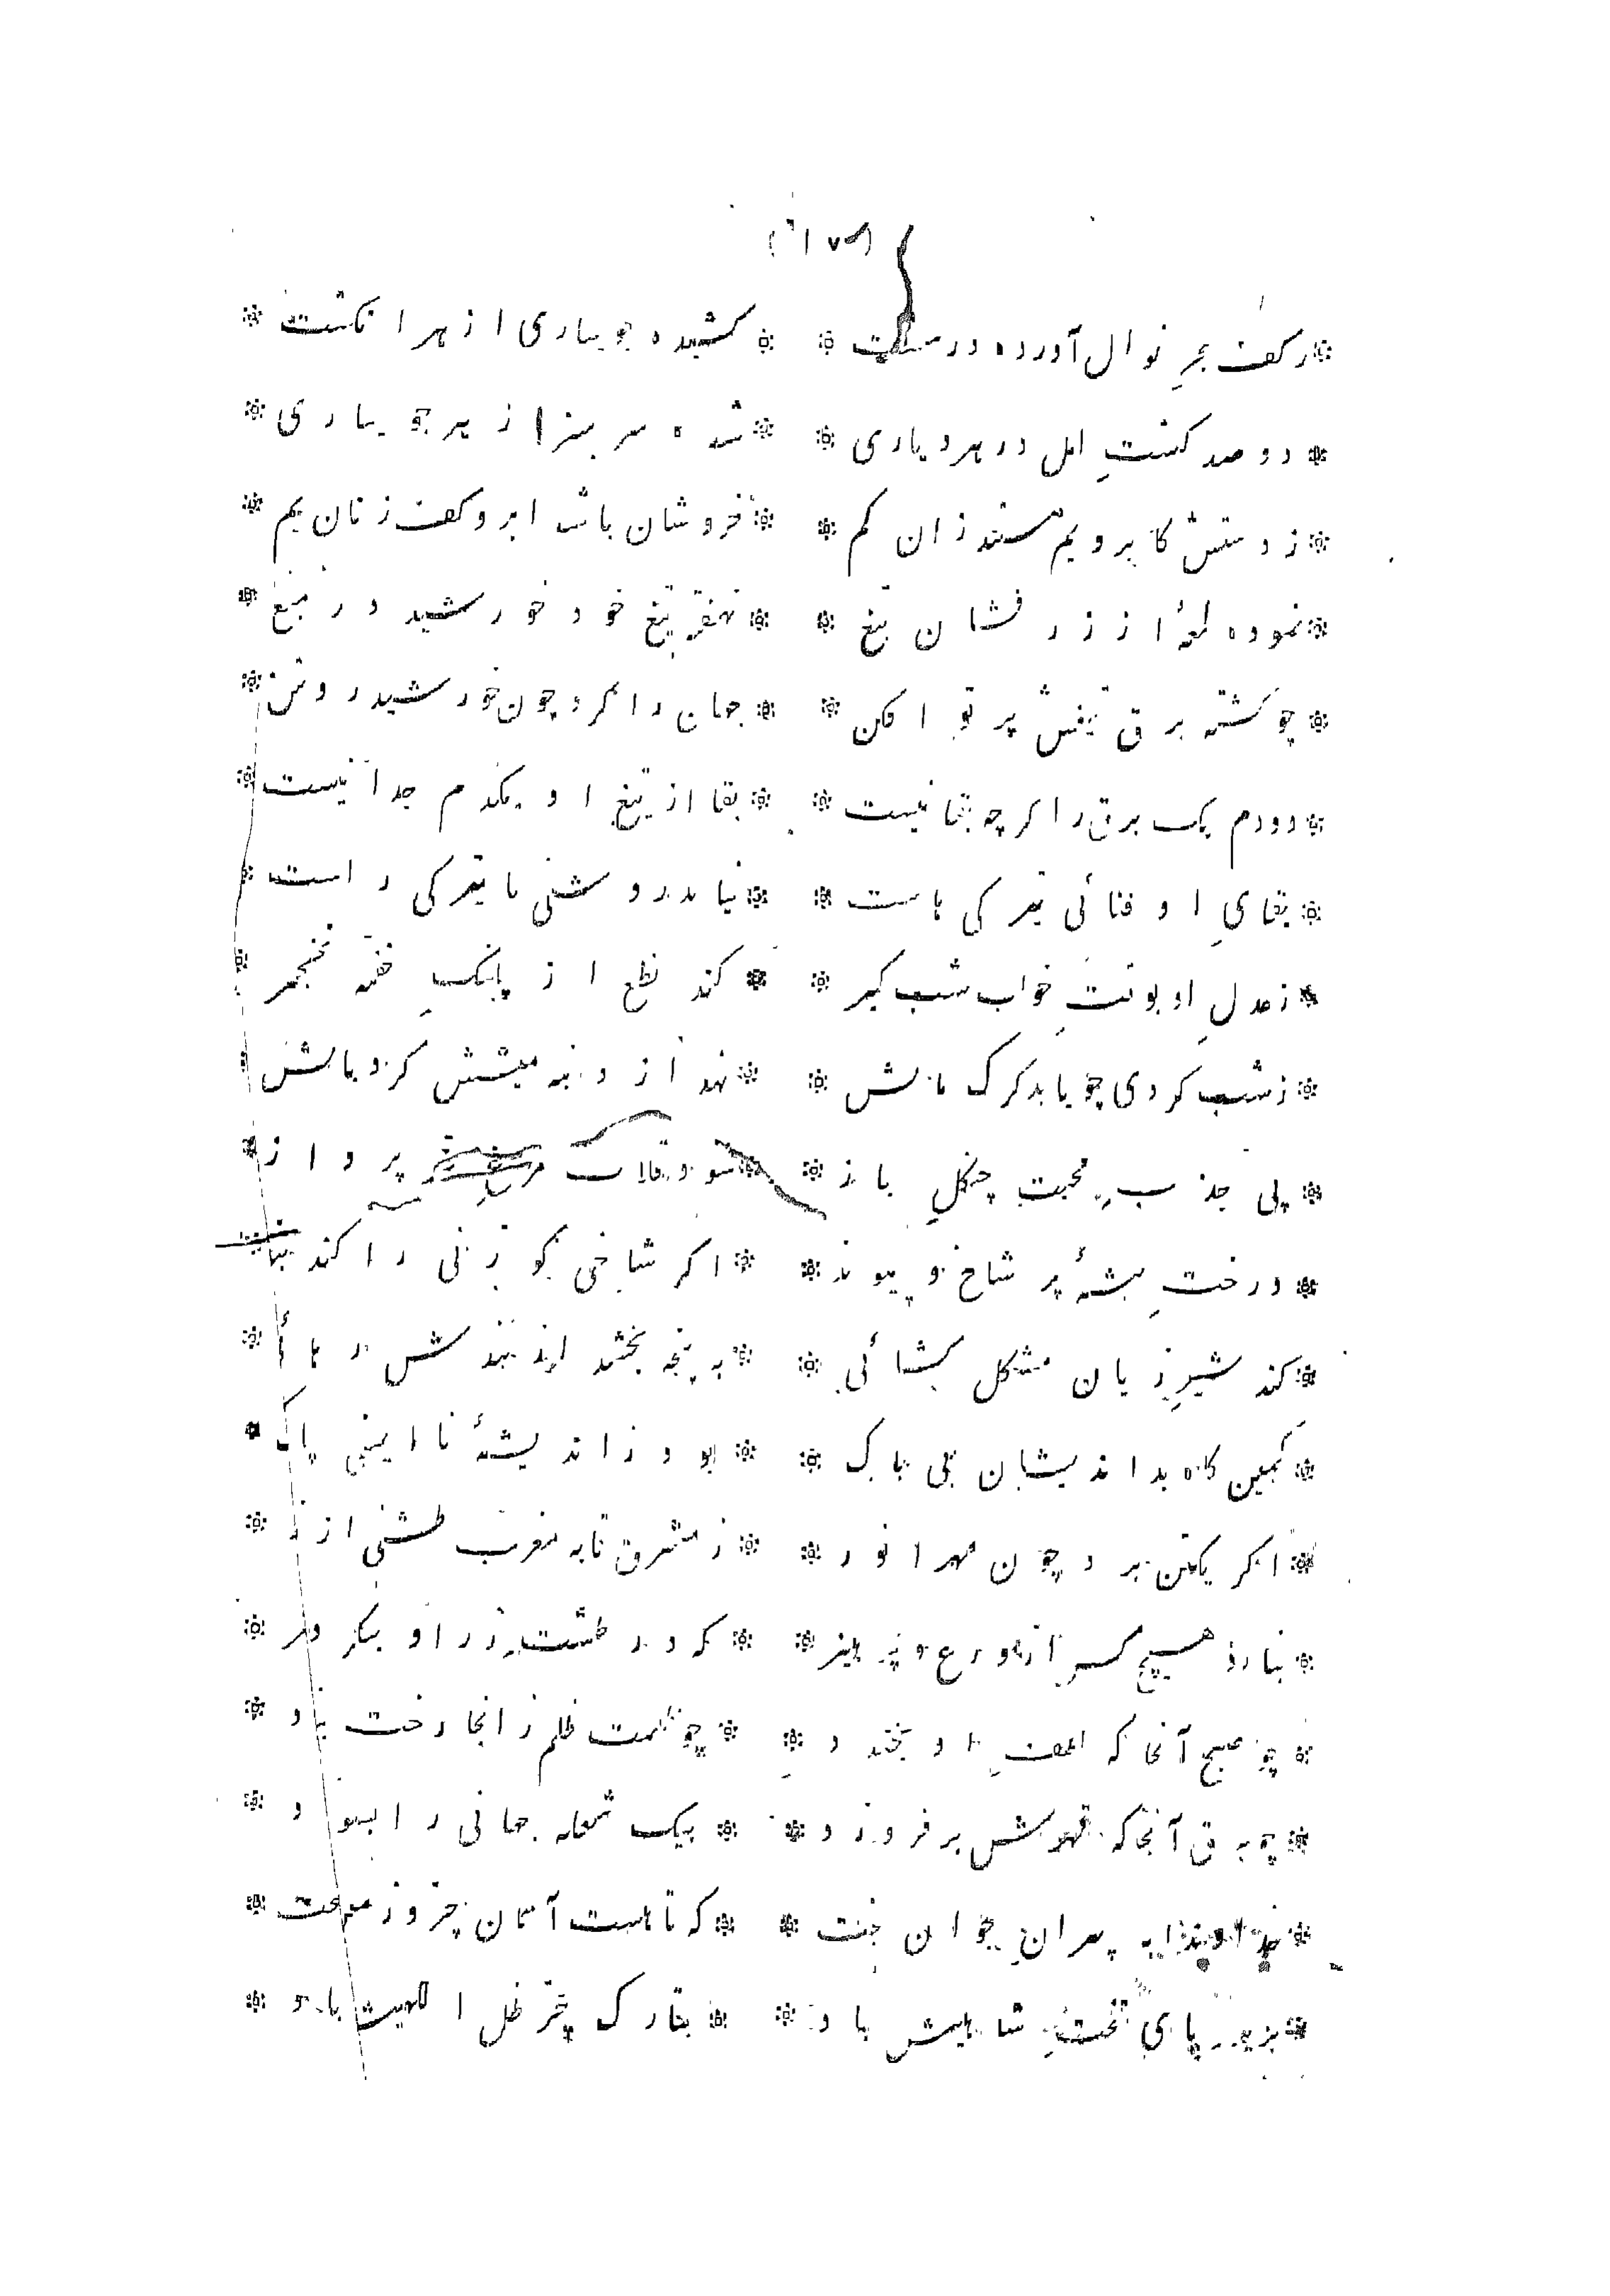 * زکف بحرِ نوال آورده در مشت * * کشیده جویباری از هر انکشت *
* دو صد کشتِ امل در هر دیاری * * شده سر سبز از هر جویباری *
* ز دستش کابر و یم هستند زان کم * * خروشان باشد ابر و کف زنان یم *
* نموده لمعۀ از زر فشان تیغ * * نهفته تیغ خود خورشید در میغ *
* چو کشته برق تیغش پرتو افکن * * جهان را کرد چون خورشید روشن *
* دو دم یک برق را کرچه بقا نیست * * بقا از تیغ او یکدم جدا نیست *
* بقایِ او فنائی تیرکی هاست * * نیاید روشنی با تیرکی راست *
* ز عدلِ او بوقتِ خواب شب کیر * * کند نطع از پلنکِ خفته نخجیر *
* ز شب کردی چو یابد کرک مالش * * نهد از دنبه میشش کرد بالش *
* پی جذبِ محبت چنکلِ باز * * شود قلاب مرغ پرواز *
* درختِ بیشۀ پر شاخ و پیوند * * اکر شاخی کوزنی را کند بند *
* کند شیرِ ژیان مشکل کشائی * * به پنجه بخشد از بندش رهائی *
* کمین کاه بد اندیشان بی باک * * بود ز اندیشۀ نا ایمنی پاک *
* اکر یکتن برد چون مهر انور * * ز مشرق تا به مغرب طشتی از زر *
* نیارد هیچ کس از ورع و پرهیز * * که در طشتِ زر او بنکرد تیز *
* چو صبح آنجا که لطفِ او بخندد * * چو ظلمت ظلم ز انجا رخت بندد *
* چو برق آنجا که قهرش بر فروزد * * بیک شعله جهانی را بسوزد *
* خداوندا به پیرانِ جوان بخت * * که تا هست آسمان چتر و زمین تخت *
* بزیر پای تختِ شاهیش باد * * بتارک چتر ظل اللهیش باد *